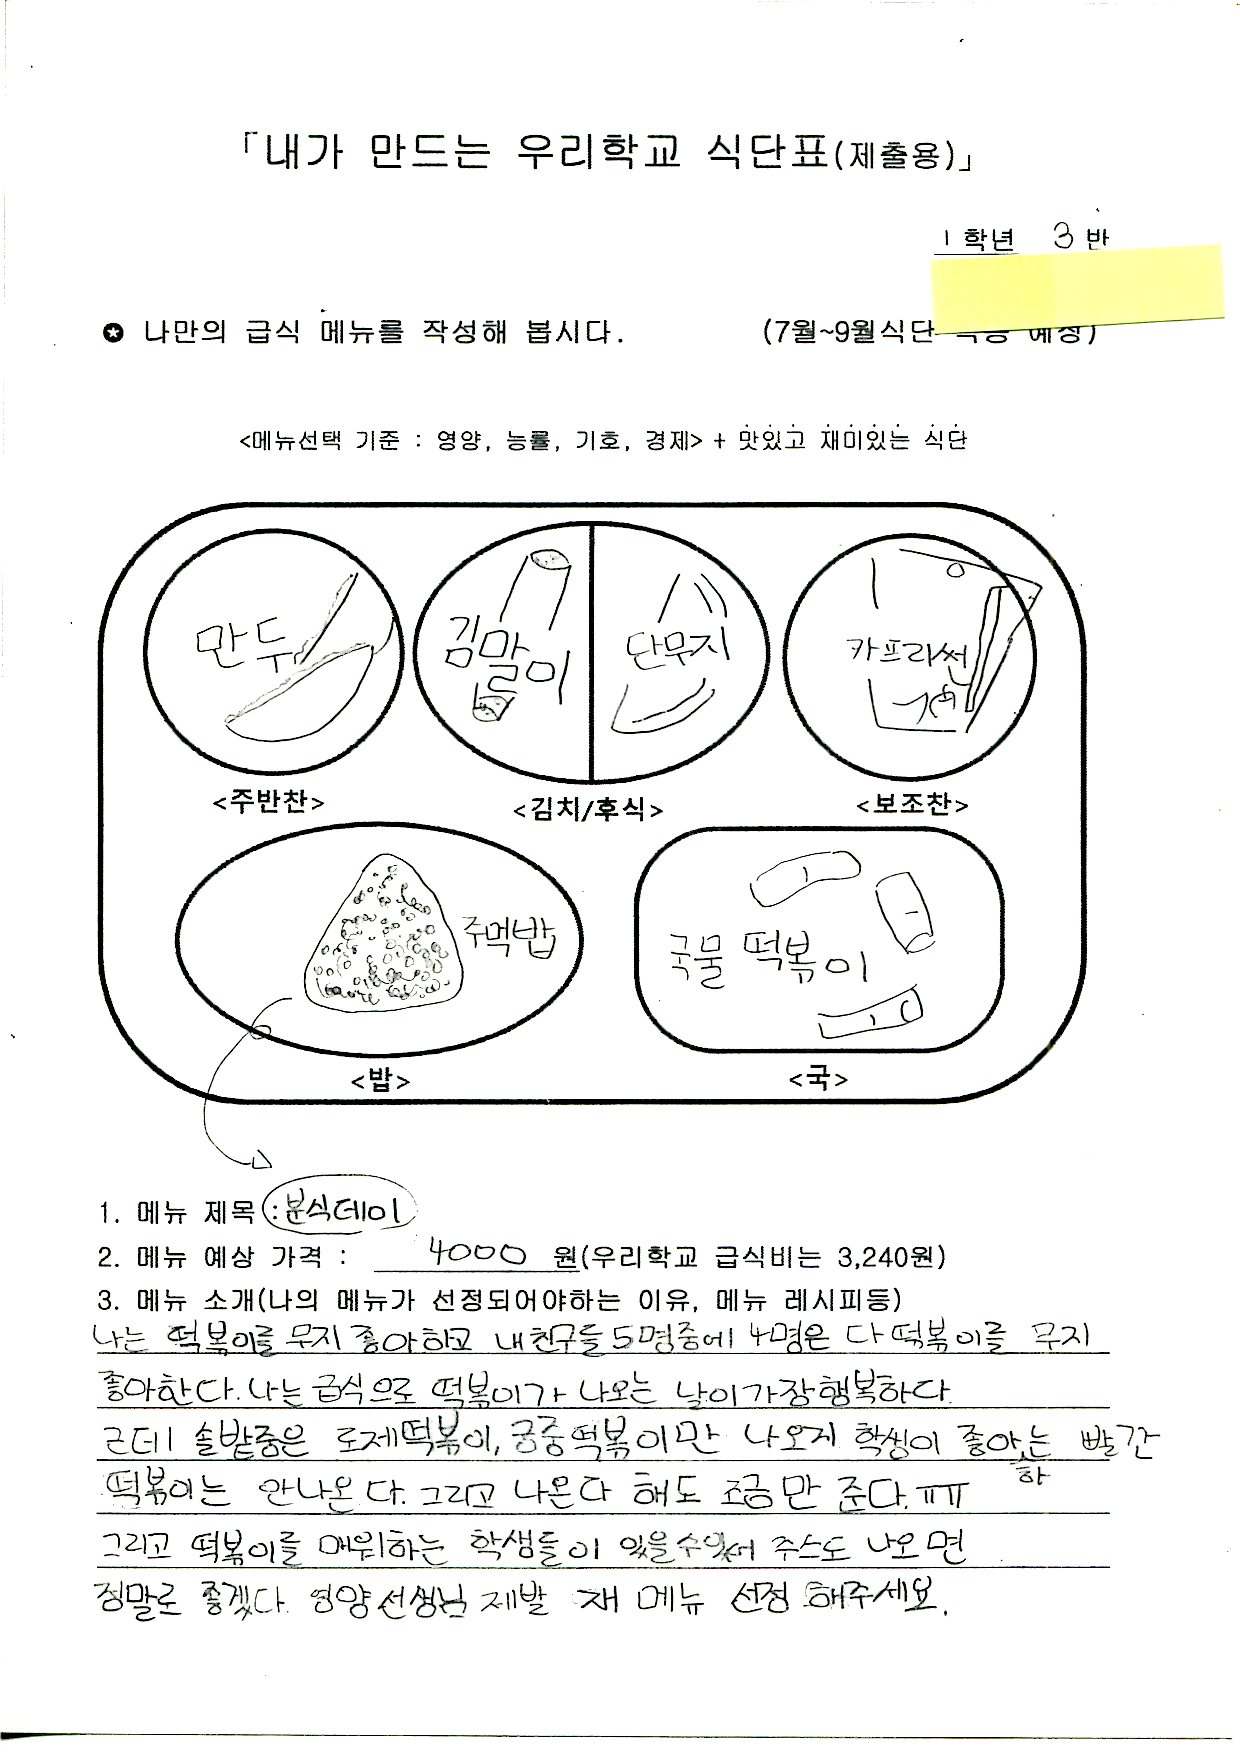 「내가 만드는 우리학교 식단표(제출용)」
1학년 3반
✪ 나만의 급식 메뉴를 작성해 봅시다. (7월~9월식단 예정)
<메뉴선택 기준 : 영양, 능률, 기호, 경제> + 맛있고 재미있는 식단
만두 김말이 단무지 카프리썬
<주반찬> <김치/후식> <보조찬>
주먹밥 국물 떡볶이
<밥> <국>
1. 메뉴 제목 : 분식데이
2. 메뉴 예상 가격 : 4000 원(우리학교 급식비는 3,240원)
3. 메뉴 소개(나의 메뉴가 선정되어야하는 이유, 메뉴 레시피등)
나는 떡볶이를 무지 좋아하고 내 친구들 5명중에 4명은 다 떡볶이를 무지
좋아한다. 나는 급식으로 떡볶이가 나오는 날이 가장 행복하다
근데 솔밭중은 로제떡볶이, 궁중떡볶이만 나오지 학생이 좋아하는 빨간
떡볶이는 안나온다. 그리고 나온다 해도 조금만 준다. ㅠㅠ
그리고 떡볶이를 매워하는 학생들이 있을수있어 주스도 나오면
정말로 좋겠다. 영양선생님 제발 재 메뉴 선정 해주세요.